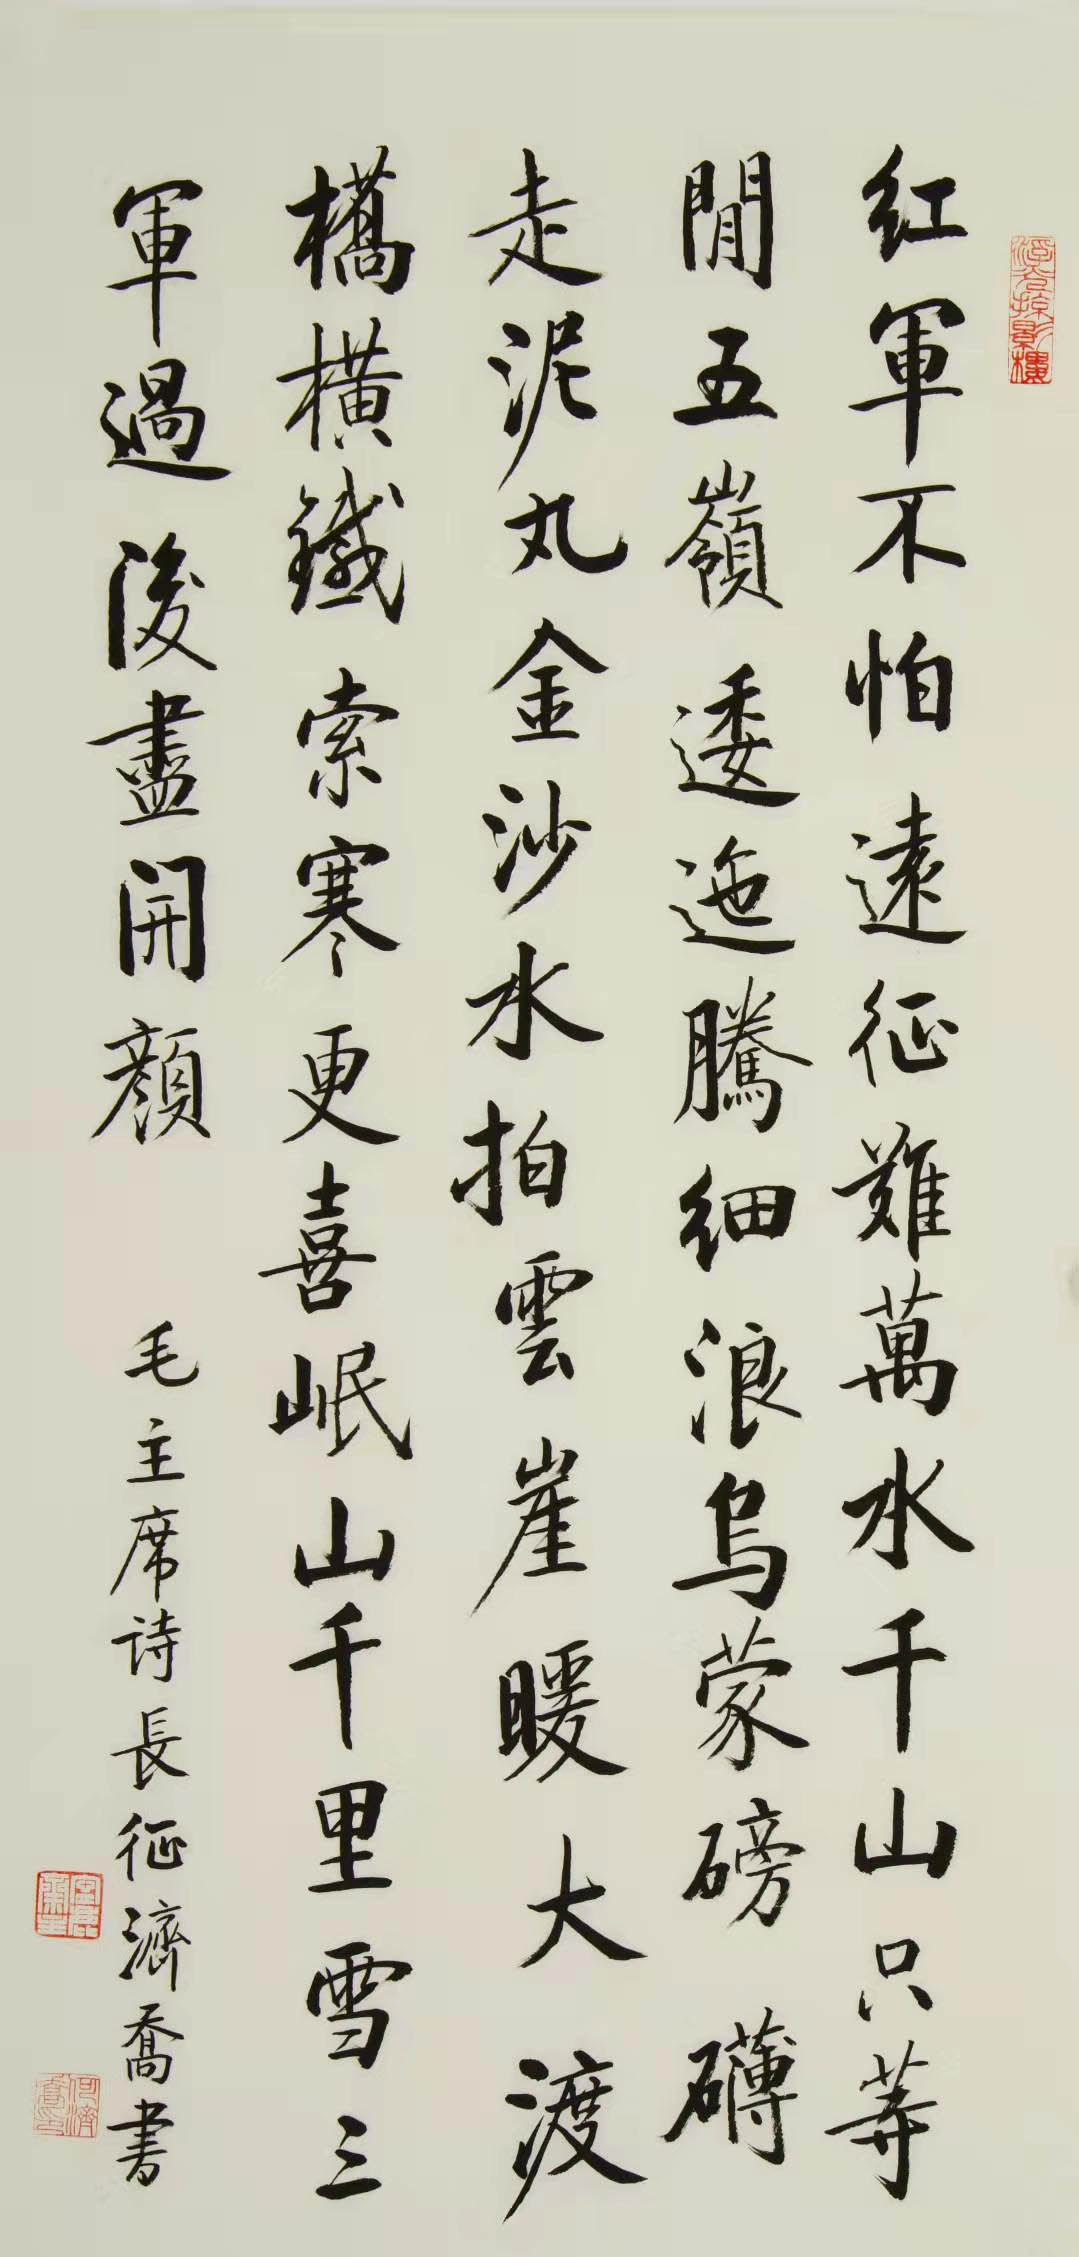 红軍不怕遠征難萬水千山只等
閒五嶺逶迤騰细浪烏蒙磅礴
走泥丸金沙水拍雲崖暖大渡
橋橫鐵索寒更喜岷山千里雪三
軍過後盡開顔
毛主席诗長征濟喬書